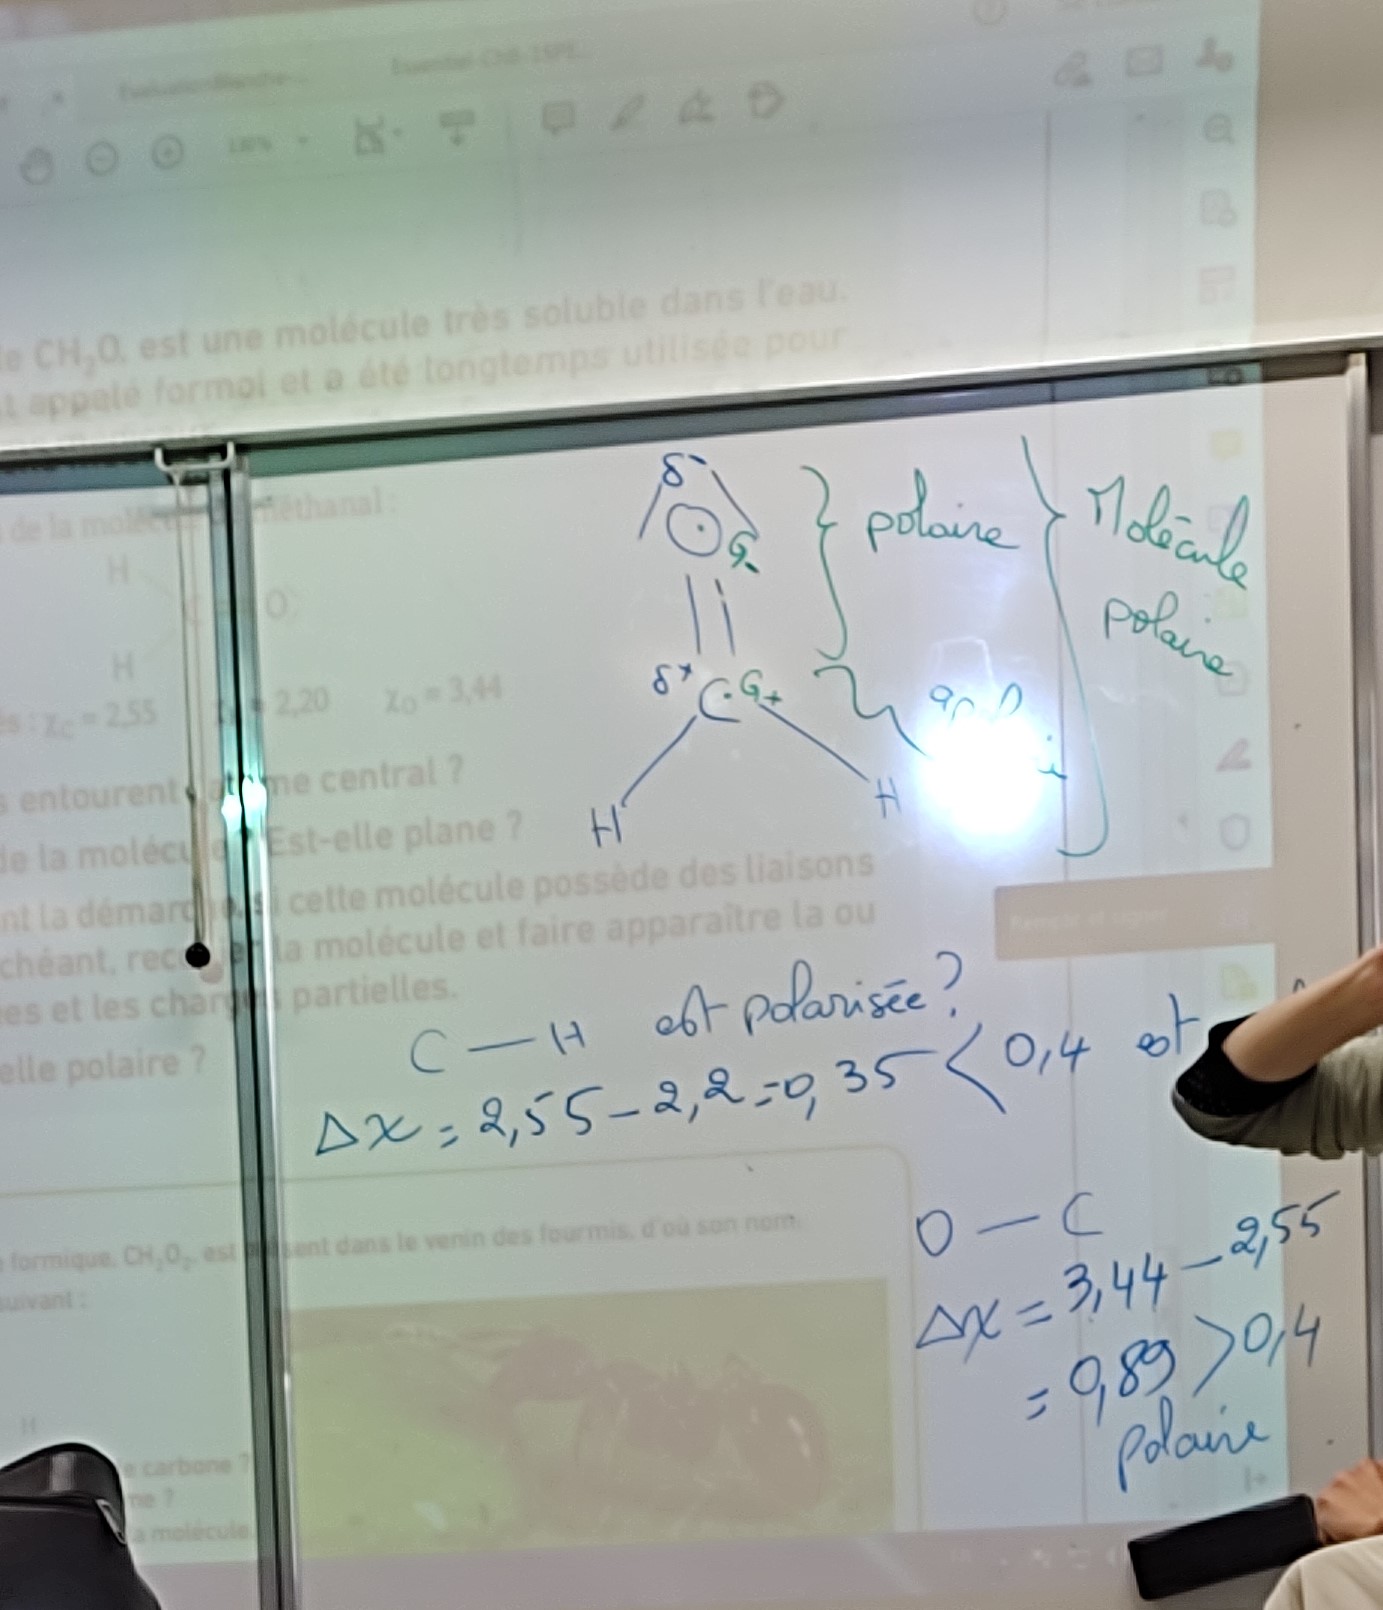 e CH₂O, est une molécule très soluble dans l'eau.
t appelé formol et a été longtemps utilisée pour
de la moléc méthanal :
H
O
H
χC = 2,55 2,20 χO = 3,44
s entourent at me central ?
de la molécu Est-elle plane ?
nt la démarc si cette molécule possède des liaisons
chéant, rec er la molécule et faire apparaître la ou
es et les charges partielles.
elle polaire ?
δ-
O G-
δ+ C G+
H H
} polaire
} Molécule
polaire
C — H est polarisée ?
Δχ = 2,55 - 2,2 = 0,35 < 0,4 est
O — C
Δχ = 3,44 - 2,55
= 0,89 > 0,4
polaire
formique, CH₂O₂, est sent dans le venin des fourmis, d'où son nom.
suivant :
H
e carbone ?
me ?
a molécule